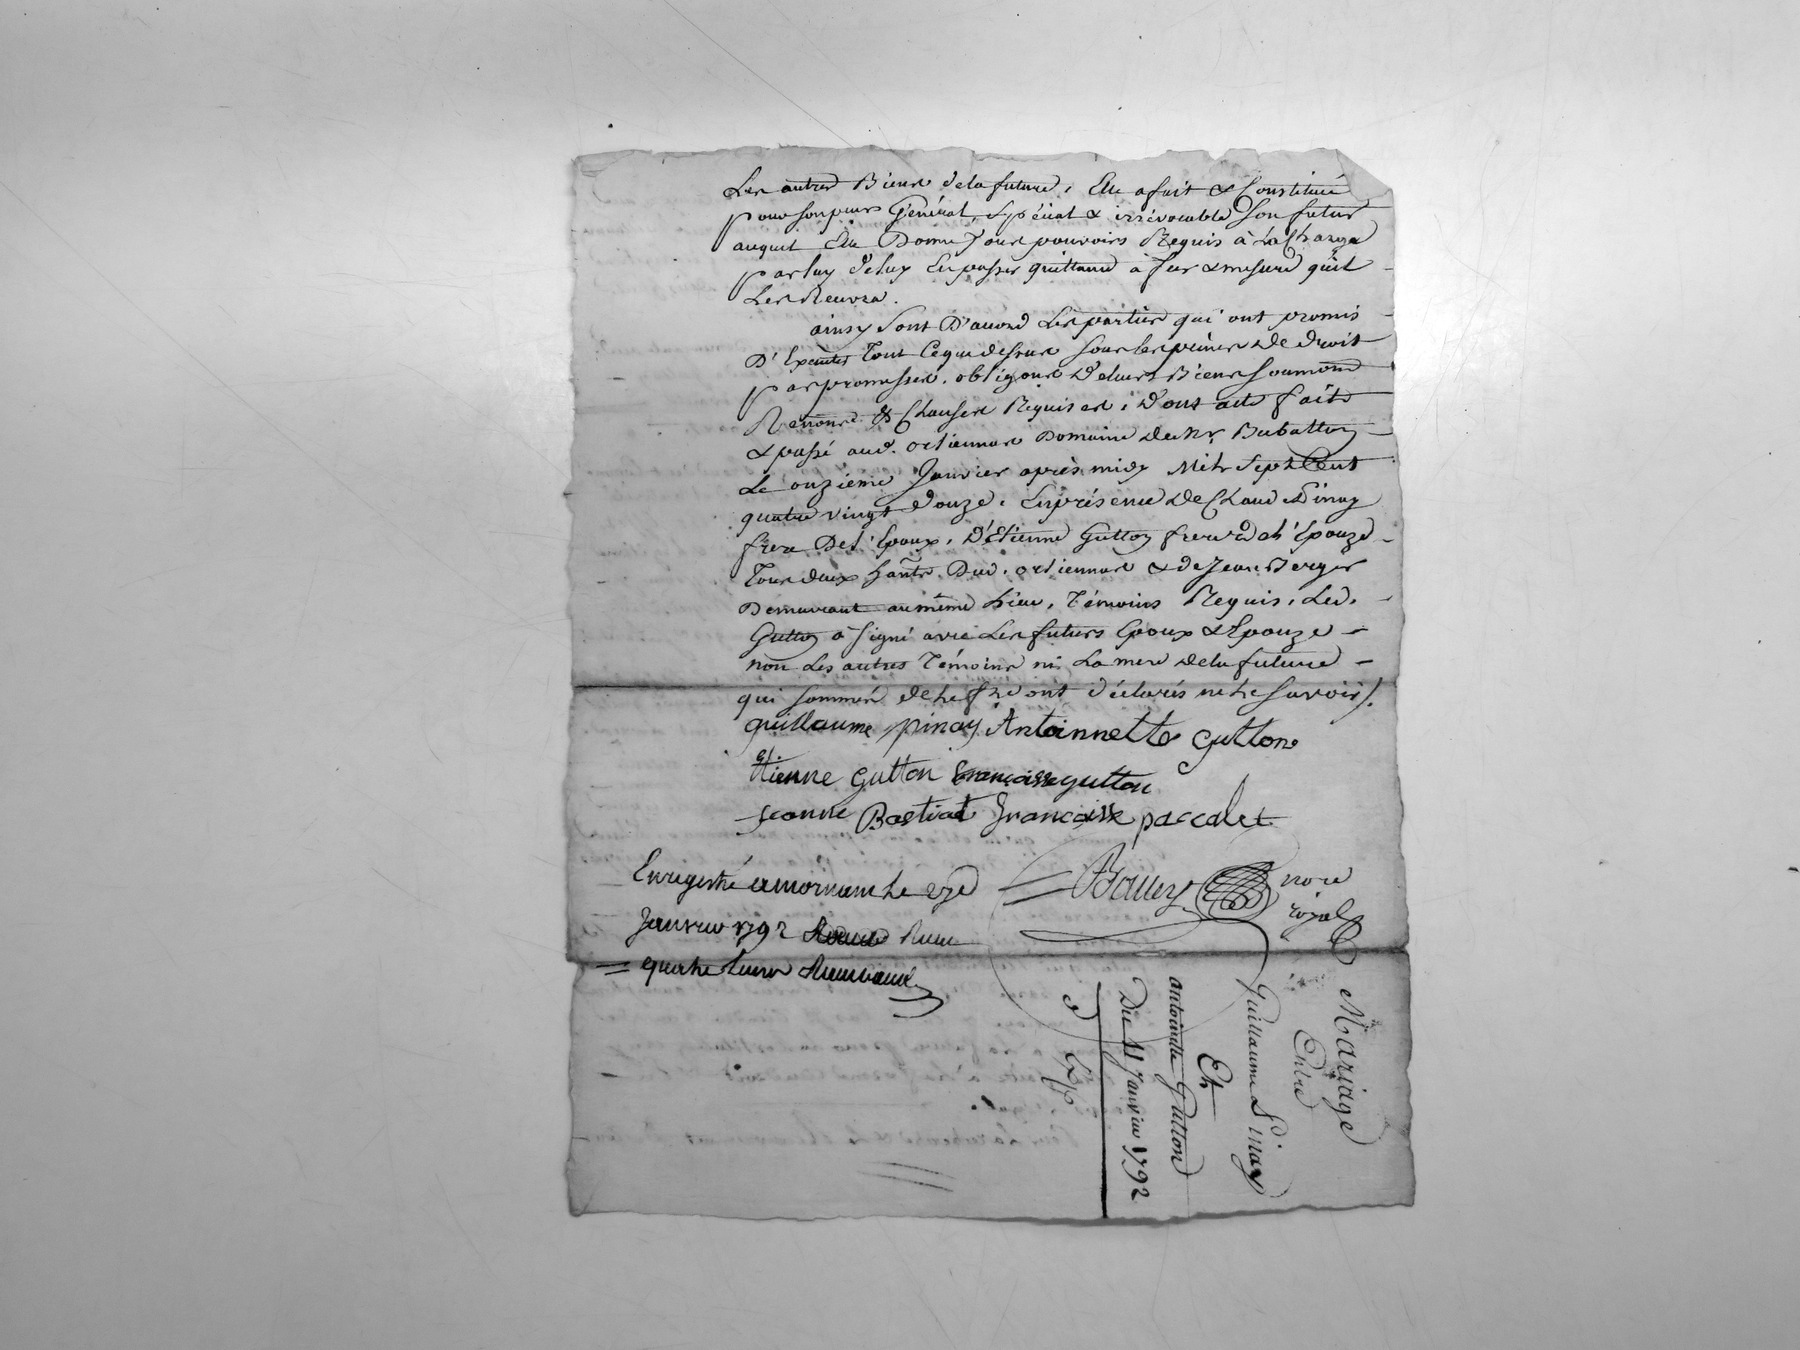 Les autres Biens de la future, Elle a fait & Constitué
pour son pnr Général, Spécial & irrévocable Son futur
auquel Elle Donne Tous pouvoirs Requis à La Charge
par luy d'eluy En passer quittance à fur & mesure qu'il
Les Recevra.
ainsy Sont D'accord Les parties qui ont promis
D'Exécuter Tout Ce que dessus Sous les peines de droit
par promesses, obligons de leurs Biens Soumons
Renonc & Clauses Requises, dont acte fait
& passé aud. ortiennas Domaine de Mr
Le onzieme Janvier après midy Mil Sept Cent
quatre vingt douze, En présence de Claude Pinay
frere De l'Epoux, D'Etienne Gutton frere de l'Epouze
Tous deux hants. Dud. ortiennas & de Jean Berger
Demeurant au même Lieu, Témoins Requis, Led.
Gutton a signé avec Les futurs Epoux & Epouze
non Les autres Témoins ni La mere de la future
qui sommés de le f re ont déclarés ne le savoir /.
guillaume pinay Antoinnette gutton
etienne gutton francoisse gutton
jeanne Bastiat francoisse paccalet
nore
royal
Enregistré a mornant le
Janvier 1792 Reçu
quatre livres
Mariage
Entre
Guillaume Pinay
Et
antoinette Gutton
Du 11 Janvier 1792